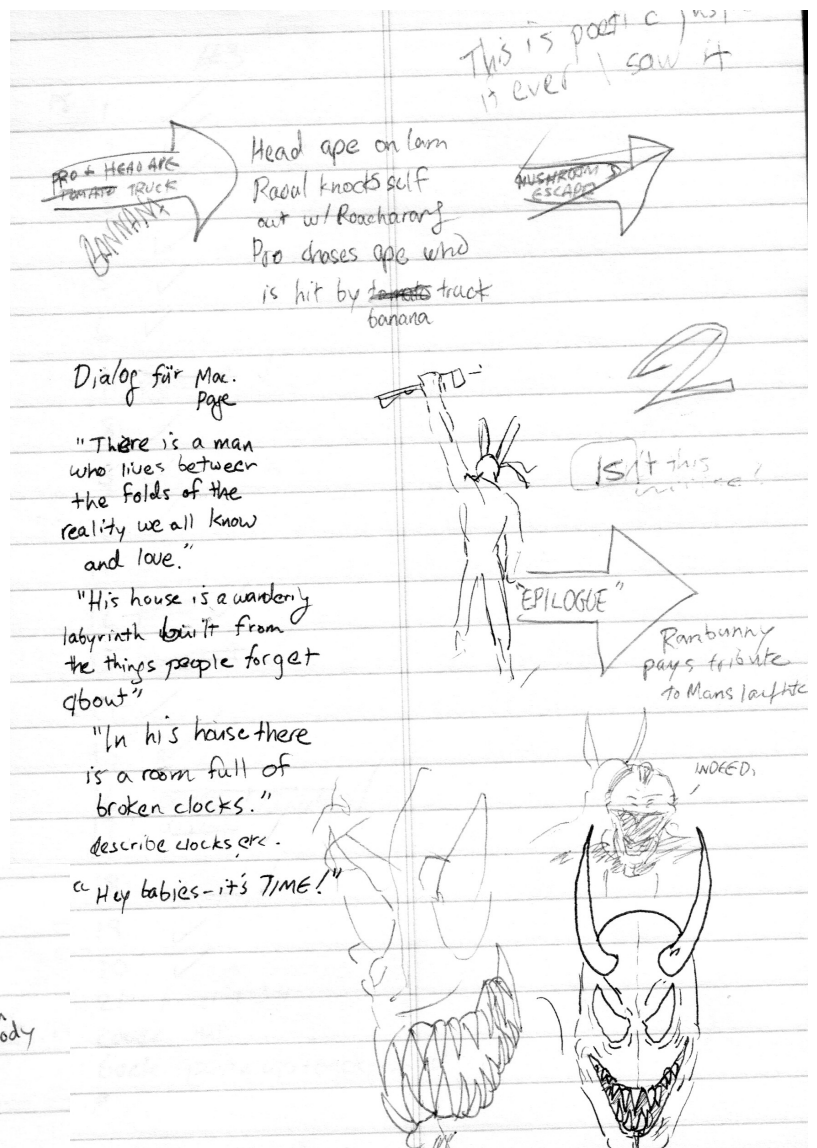 This is poetic just
it ever I saw it
PRO + HEAD APE
TOMATO TRUCK
BANNANA
Head ape on lam
Raoul knocks self
out w/ Roacharang
Pro chases ape who
is hit by tomato truck
banana
MUSHROOM
ESCAPE
2
Isn't this
Dialog für Mac.
Page
"There is a man
who lives between
the folds of the
reality we all know
and love."
"His house is a wanderly
labyrinth built from
the things people forget
about"
"In his house there
is a room full of
broken clocks."
describe clocks etc.
"Hey babies - it's TIME!"
"EPILOGUE"
Ranbunny
pays tribute
to
INDEED.
ody